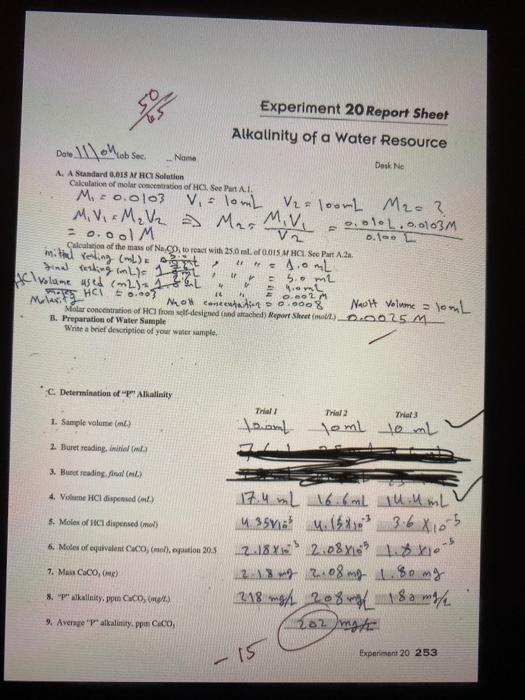 50
65
Experiment 20 Report Sheet
Alkalinity of a Water Resource
Date 11/04 Lab Sec. Name
Desk No
A. A Standard 0.015 M HCl Solution
Calculation of molar concentration of HCl. See Part A.1.
M₁ = 0.0103 V₁ = 10mL V₂ = 100mL M₂ = ?
M₁V₁ = M₂V₂ ⇒ M₂ = M₁V₁ / V₂ = 0.010L . 0.0103M / 0.100 L
= 0.001M
Calculation of the mass of Na₂CO₃ to react with 25.0 mL of 0.015 M HCl. See Part A.2a.
initial reading (mL) = " " = 1.0 mL
final reading (mL) = " " = 5.0 mL
HCl volume used (mL) = " " = 4.0mL
Molarity HCl = 0.003 " = 0.002M
NaOH concentration = 0.0008 NaOH Volume = 10mL
Molar concentration of HCl from self-designed (and attached) Report Sheet (mol/L) 0.0025 M
B. Preparation of Water Sample
Write a brief description of your water sample.
C. Determination of "P" Alkalinity
Trial 1 Trial 2 Trial 3
1. Sample volume (mL) 10.0mL 10mL 10 mL
2. Buret reading, initial (mL)
3. Buret reading, final (mL)
4. Volume HCl dispensed (mL) 17.4 mL 16.6mL 14.4mL
5. Moles of HCl dispensed (mol) 4.35X10⁻⁵ 4.15X10⁻³ 3.6 X10⁻⁵
6. Moles of equivalent CaCO₃ (mol), equation 20.5 2.18X10⁻⁵ 2.08X10⁻⁵ 1.8 X10⁻⁵
7. Mass CaCO₃ (mg) 2.18mg 2.08mg 1.80 mg
8. "P" alkalinity, ppm CaCO₃ (mg/L) 218 mg/L 208mg/L 180 mg/L
9. Average "P" alkalinity, ppm CaCO₃ 202 mg/L
-15
Experiment 20 253